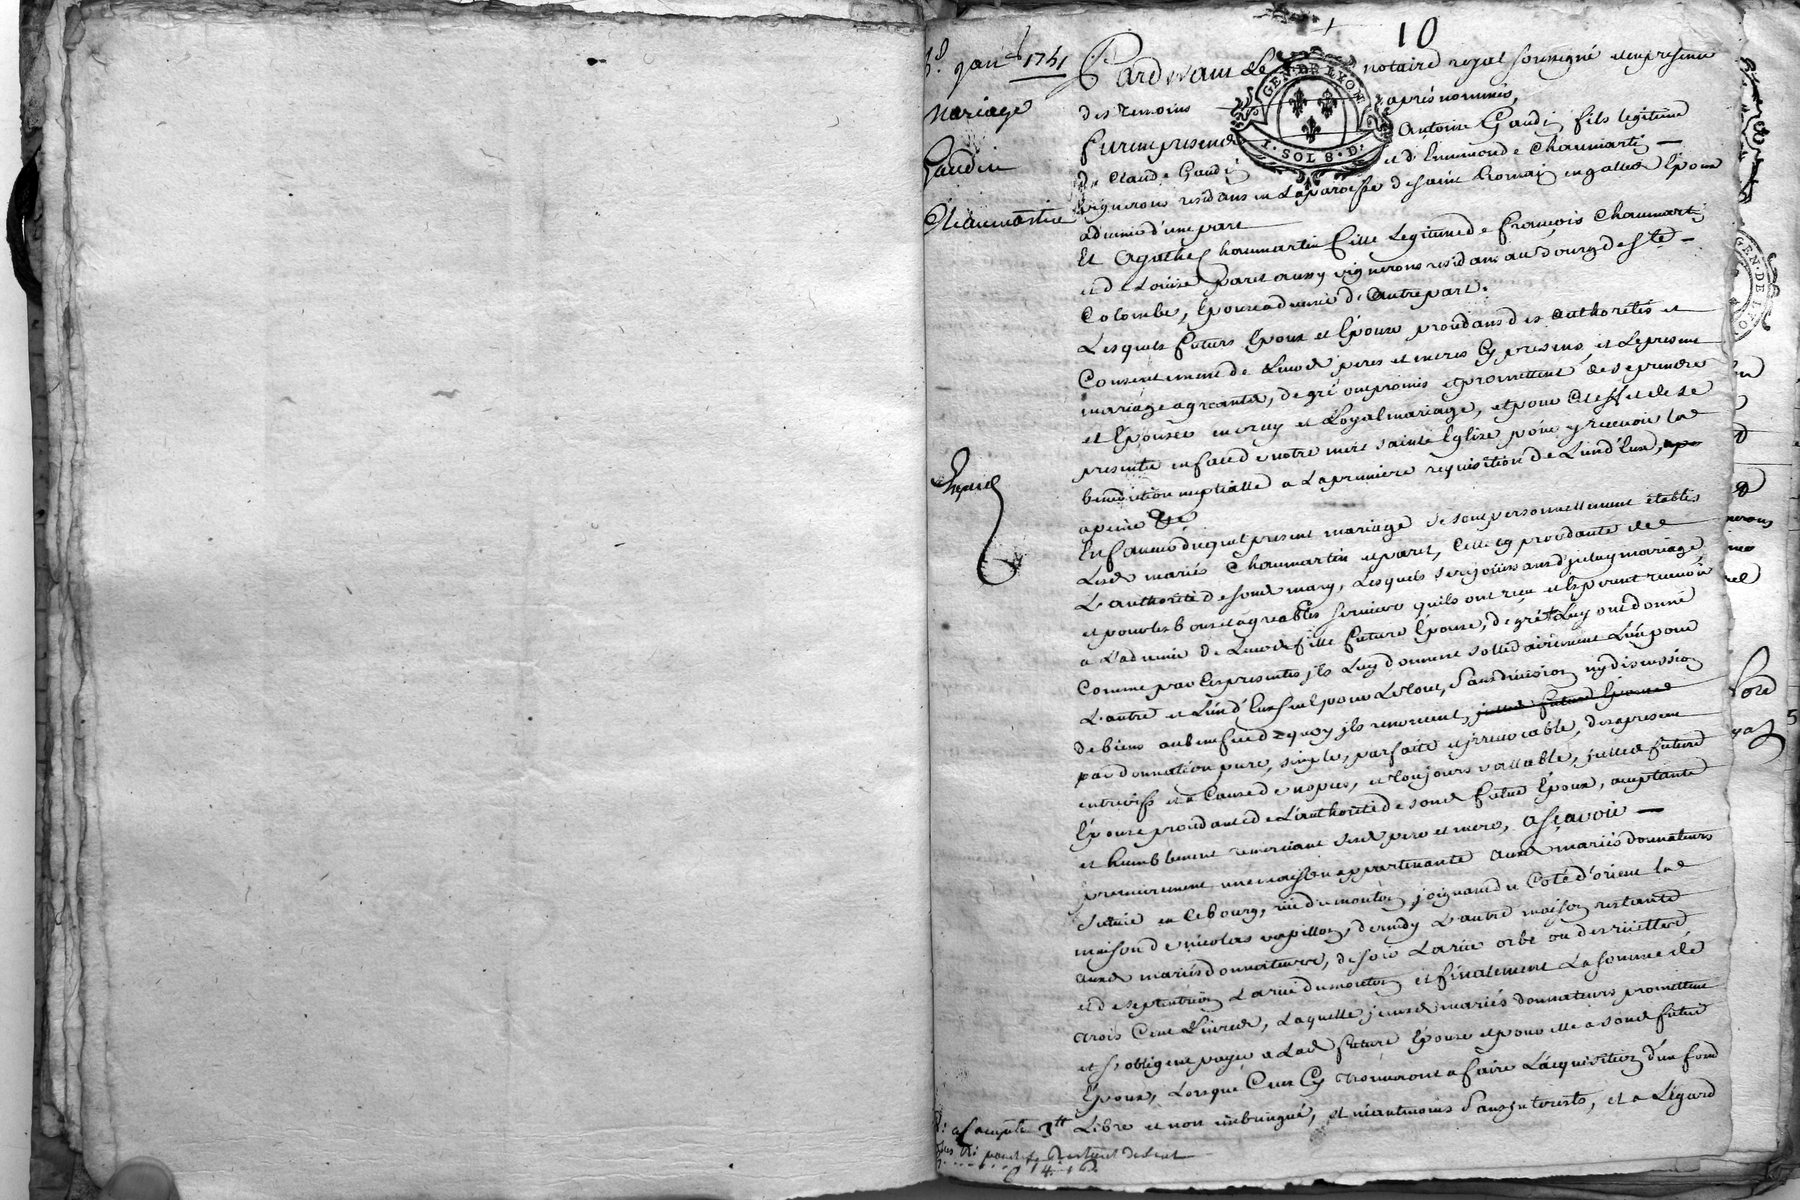 10
8.e janv.r 1751
Mariage
Gaudin
Chaumartin
Expedié
Pardevant Le notaire royal soussigné et en presence
des temoins apres nommés,
GEN. DE LYON
1. SOL 8. D.
furent presens Antoine Gaudin fils legitime
de Claude Gaudin et d'Ennemonde Chaumartin
vignerons residans en La paroisse de saint Romain en gallet Epoux
advenir d'une part
Et Agathe Chaumartin fille Legitime de François Chaumartin
et de Louise paret aussy vignerons residans au Bourg de S.te
Colombe, Epouse advenir d'autre part.
Lesquels futurs Epoux et Epouse procedans des authorités et
Consentement de Leursd. peres et meres Cy presens, et Le present
mariage agreants, de gré ont promis et promettent de se prendre
et Epouser en vray et Loyal mariage, et pour Cet effet de se
presenter en face de notre mere sainte Eglise pour y recevoir la
benediction nuptialle a La premiere requisition de L'un d'Eux,
a peine &c
En faveur duquel present mariage se sont personnellement etablis
Lesd. mariés Chaumartin et paret, Celle cy procedante de
L'authorité de sond. mary, Lesquels se rejouissans d'jceluy mariage,
et pour les bons et agreables services quils ont reçu et Esperent recevoir
a L'advenir de Leurd. fille future Epouse, de gré Luy ont donné
Comme par Ces presentes jls Luy donnent sollidairement L'un pour
L'autre et L'un d'Eux seul pour Le tout, sans division ny discussion
de biens au benefice de quoy jls renoncent, ~~jcelle future Epouse~~
par donnation pure, simple, parfaite et jrrevocable, des a present
entrevifs et a Cause de nopces, et toujours vallable, jcelle future
Epouse procedante de L'authorité de sond. futur Epoux, acceptante
et humblement remerciant sesd. pere et mere, asçavoir
premierement une maison appartenante auxd. mariés donnateurs
scituée en Ce bourg, rüe du mouton, joignant du Coté d'orient la
maison de nicolas papillon, de midy L'autre maison restante
auxd. mariés donnateurs, de soir La rüe orbe ou des ruettes
et de septentrion La rüe du mouton et finalement La somme de
trois Cent Livres, Laquelle jceuxd. mariés donnateurs promettent
et s'obligent payer a Lad. future Epouse et pour elle a sond. futur
Epoux, Lorsque Ceux Cy trouveront a faire L'acquisition d'un fond
Libre et non imbringué, et neantmoins sans jnterests, et a L'égard